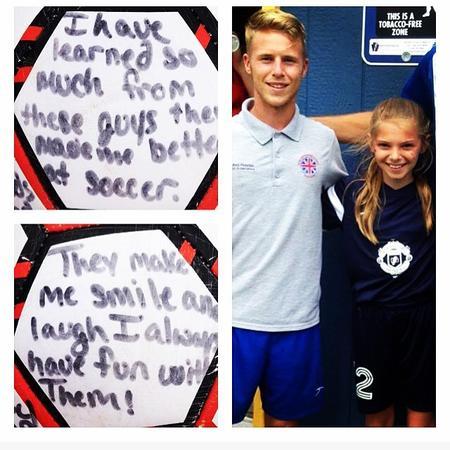 I have
learned so
much from
these guys they
made me better
at soccer.
They make
me smile and
laugh I always
have fun with
Them!
THIS IS A
TOBACCO-FREE
ZONE
2